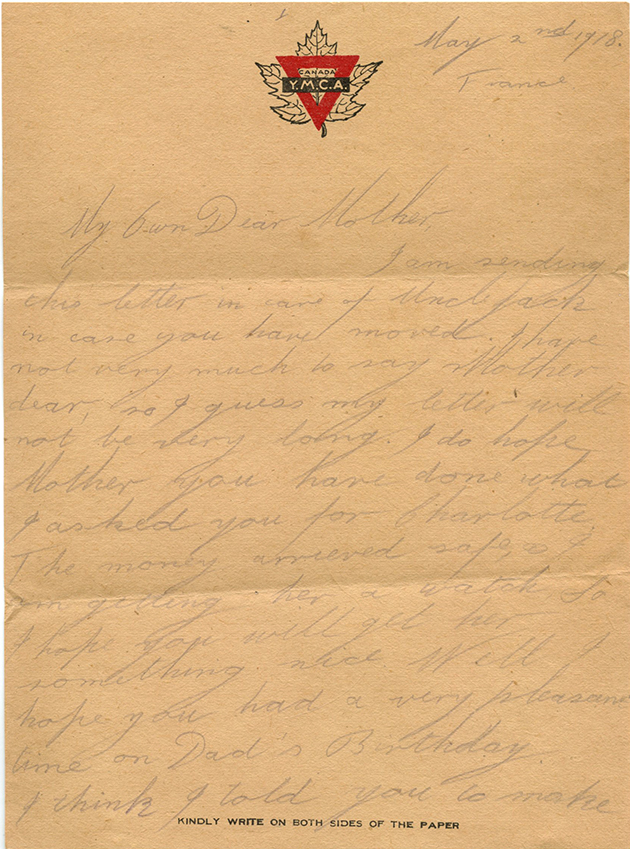 May 2nd 1918.
France
CANADA
Y.M.C.A.
My Own Dear Mother,
I am sending
this letter in care of Uncle Jack
in case you have moved. I have
not very much to say Mother
dear, so I guess my letter will
not be very long. I do hope
Mother you have done what
I asked you for Charlotte.
The money arrieved safe, I
am giving her a watch So
I hope you will get her
something nice. Well I
hope you had a very pleasant
time on Dad's Birthday
I think I told you to make
KINDLY WRITE ON BOTH SIDES OF THE PAPER